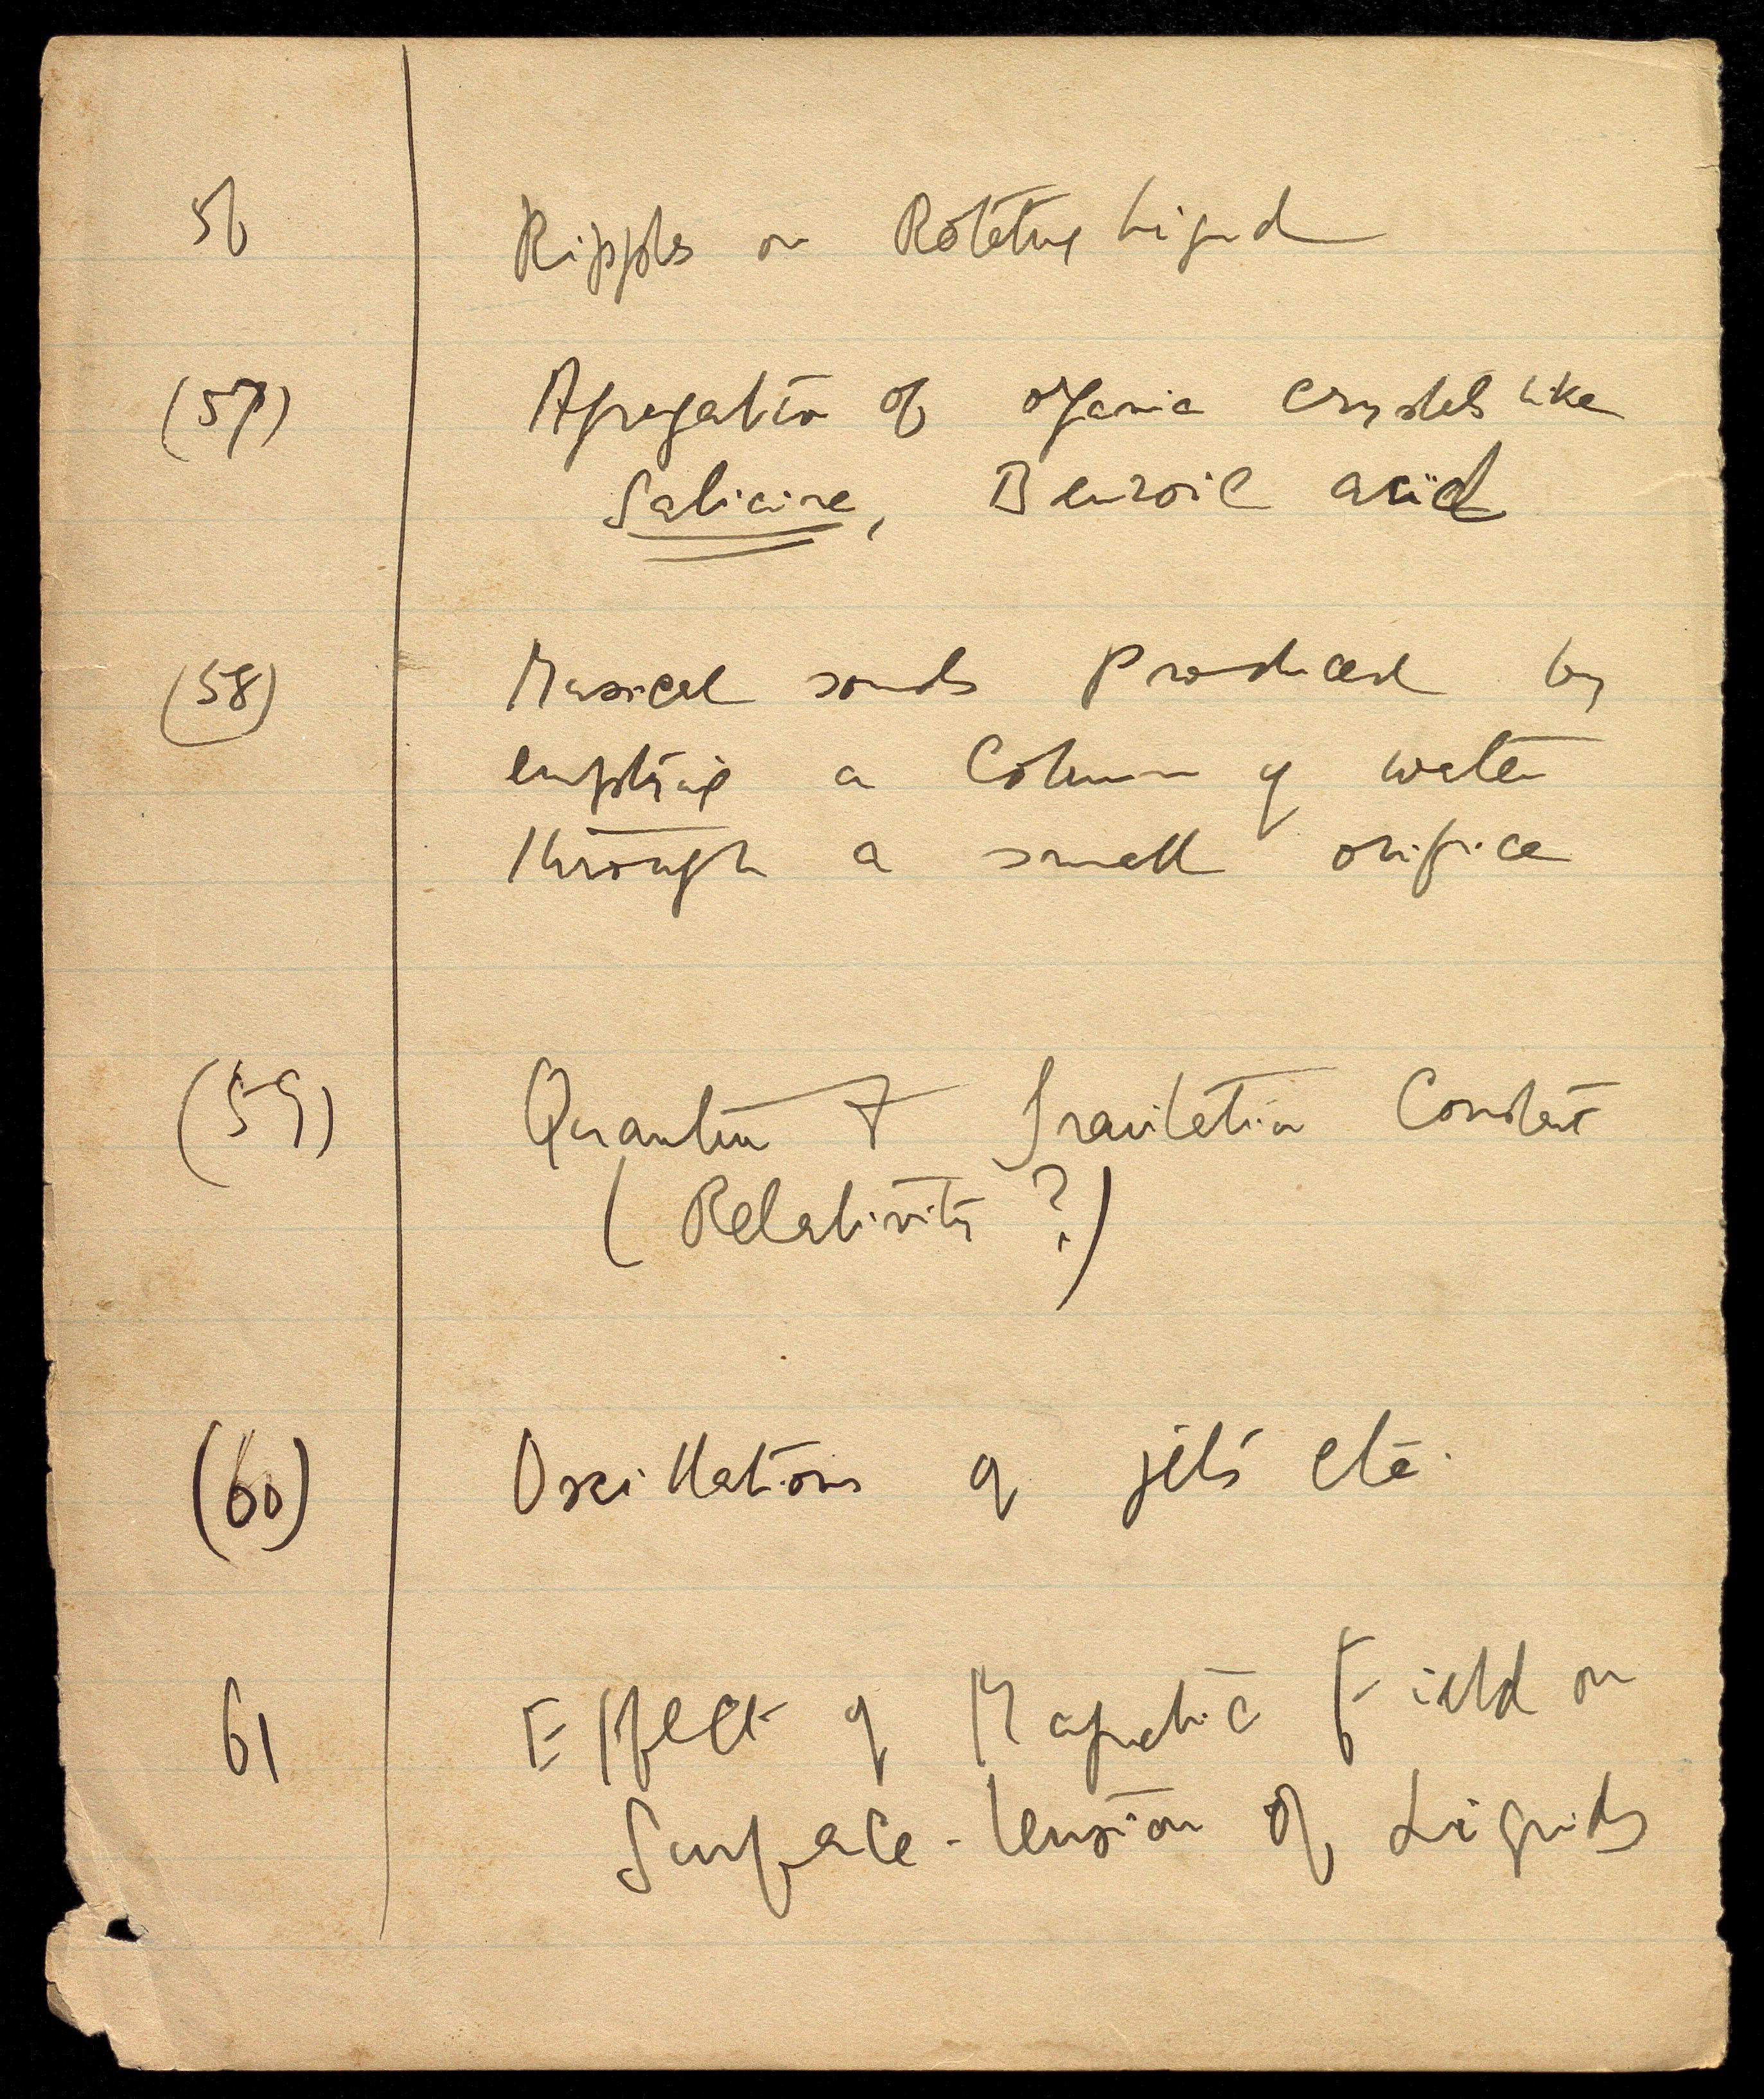 56 Ripples on Rotating Liquid
(57) Aggregation of organic crystals like
Salicine, Benzoic acid
(58) Musical sounds Produced by
emptying a Column of water
through a small orifice
(59) Quantum & Gravitation Constant
(Relativity ?)
(60) Oscillations of jets etc.
61 Effect of Magnetic Field on
Surface-tension of Liquids